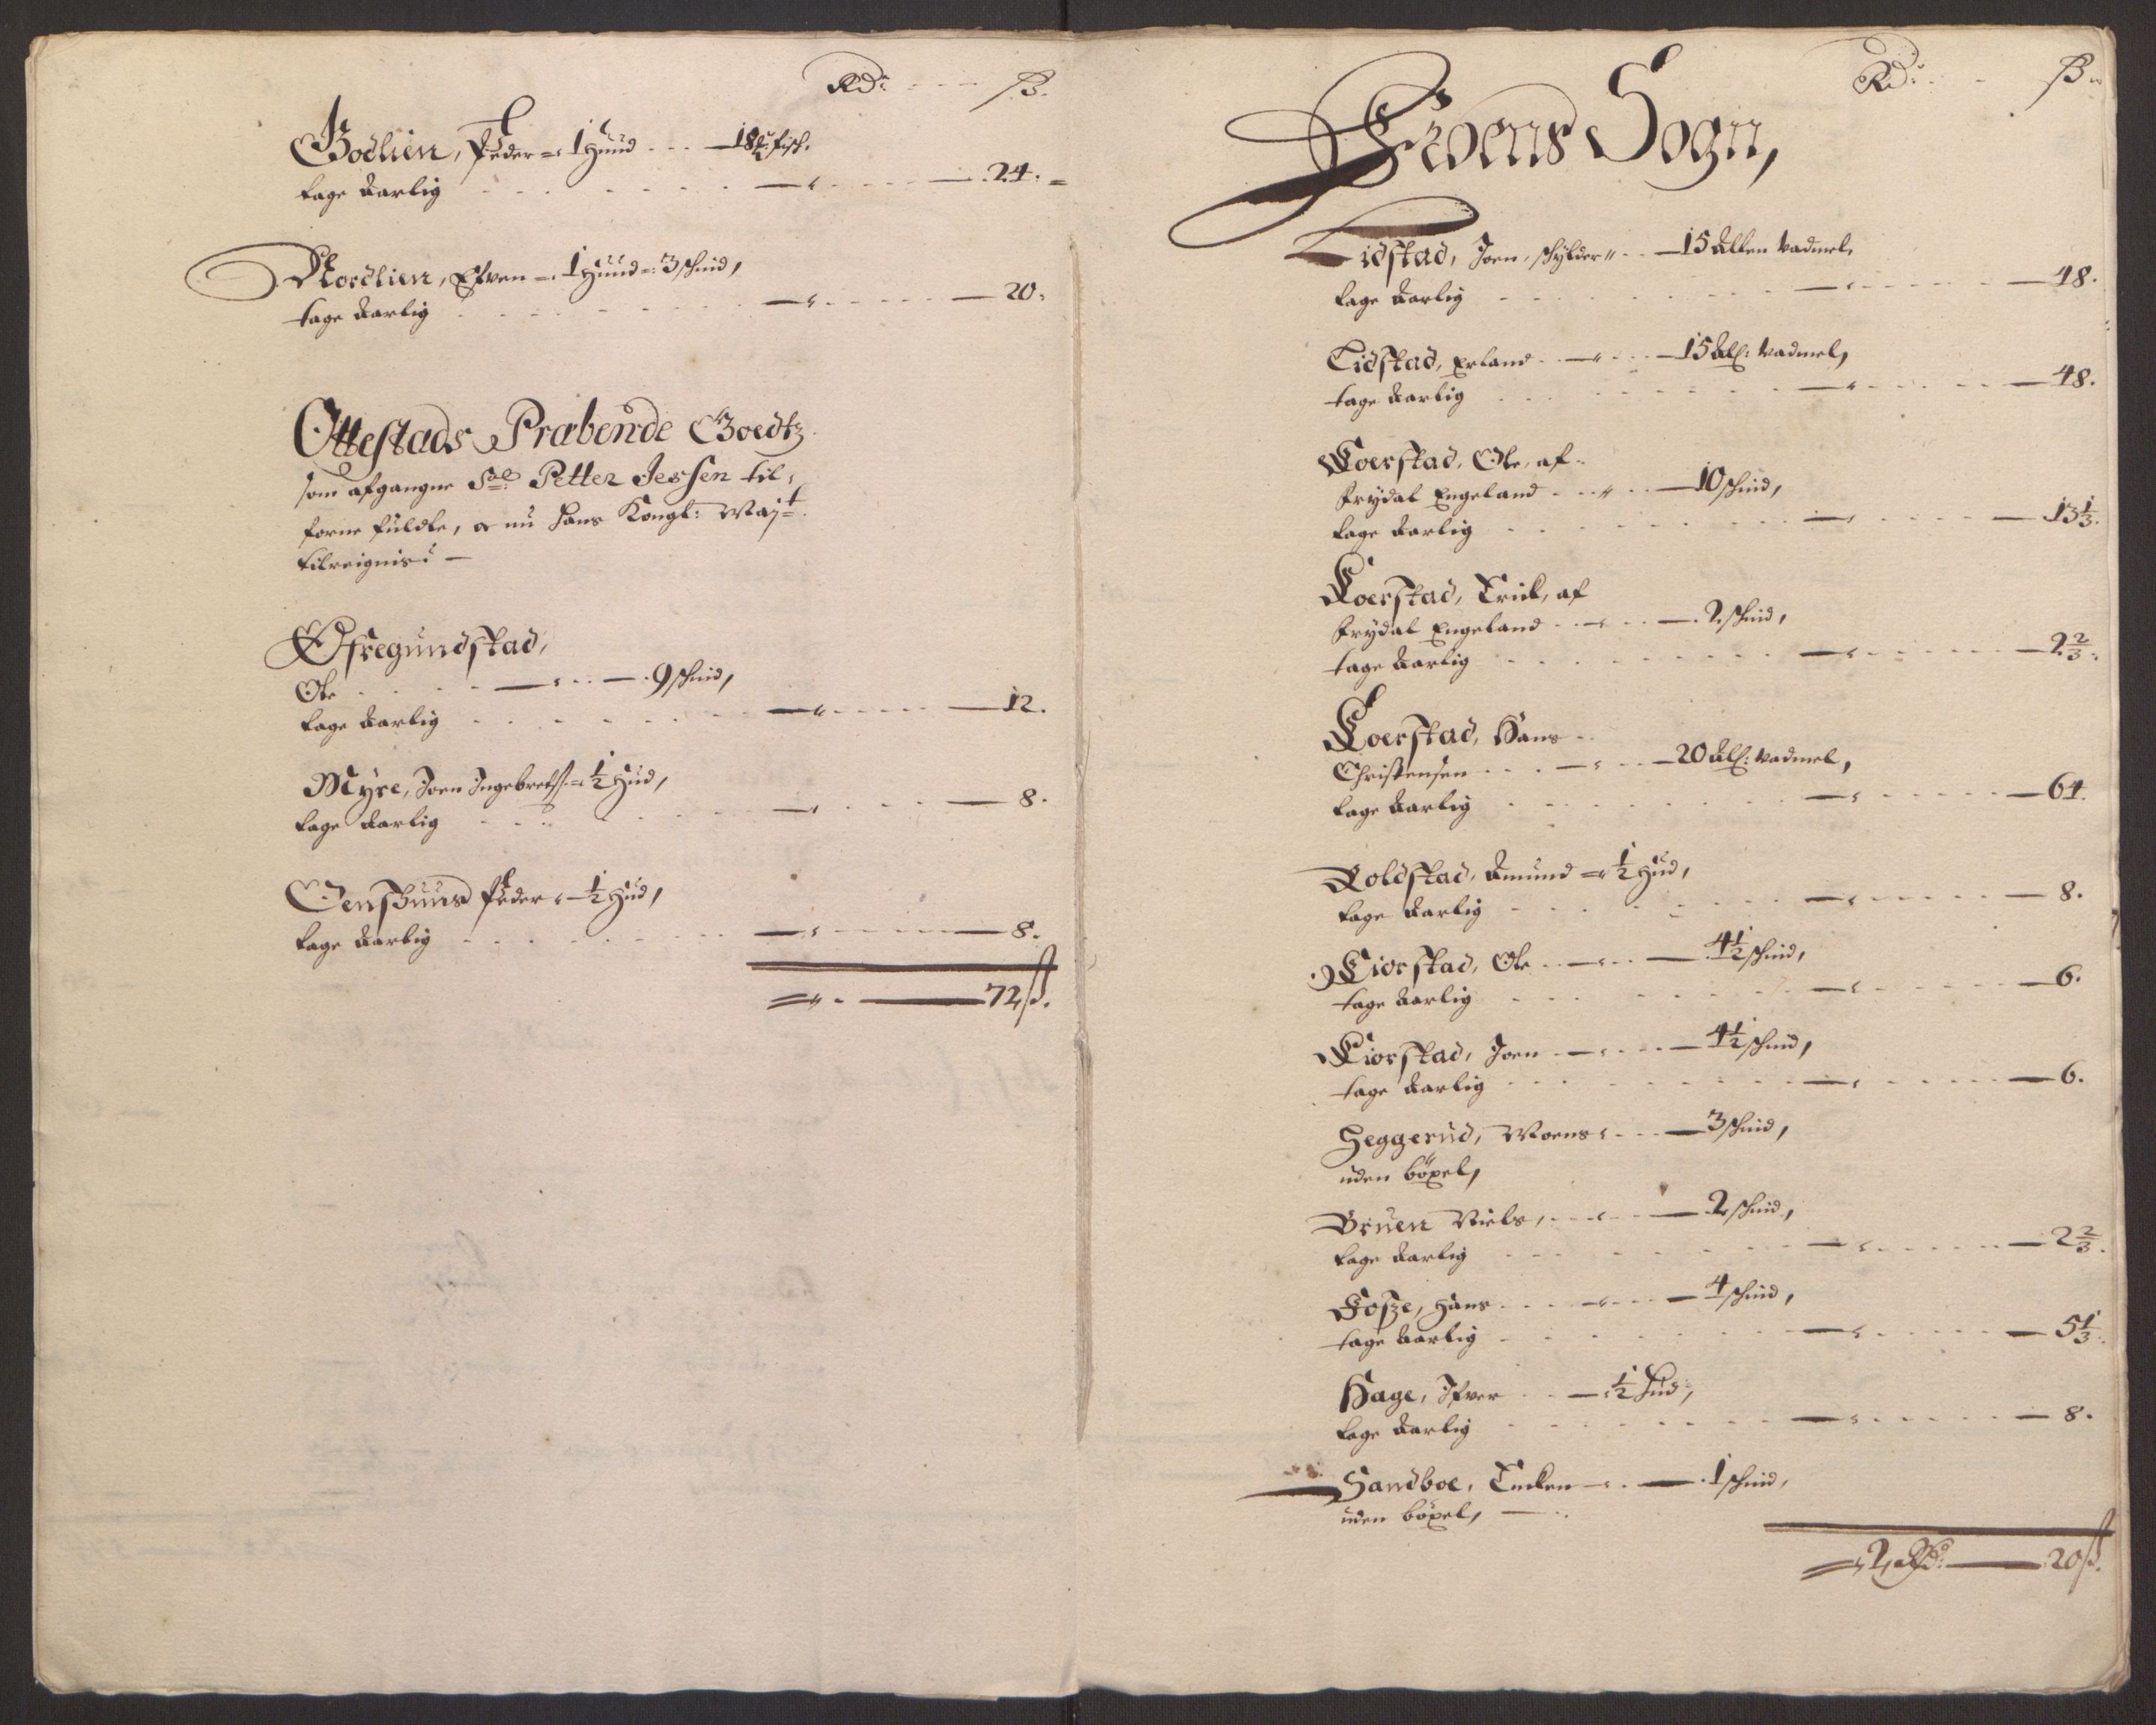 Rd: ß.
Bodlien, Peder = 1 Hund 18 fisch.
tage aarlig 24.
Nordlien, Efven = 1 Hund = 3 schind,
tage aarlig 20.
Ottestads Præbende Goedtz
som afgangne Sal: Petter Jessen til,
forne fuldte, er nu Hans Kongl: Mayt.
Øfregundstad,
Ole 9 schind,
tage aarlig 12.
Myre, Joen Ingebretss. = ½ Hud,
tage aarlig 8.
Peder ½ Hud,
tage aarlig 8.
72 ß.
Rd: ß
Froens Sogn,
Lidstad, Joen, schylder 15 Allen Vadmel,
tage aarlig 48.
Lidstad, Erland 15 All: Vadmel,
tage aarlig 48.
Loerstad, Ole, af
frydal Engeland 10 schind,
tage aarlig 13⅓.
Loerstad, Erick, af
frydal Engeland 2 schind,
tage aarlig 2⅔.
Loerstad, Hans
Christensen 20 All: Vadmel,
tage aarlig 64.
Roldstad, Amund = ½ Hud,
tage aarlig 8.
Kiorstad, Ole 4½ schind,
tage aarlig 6.
Kiorstad, Joen 4½ schind,
tage aarlig 6.
Heggerud, Moens 3 schind,
uden böxel,
Bruen Niels, 2 schind,
tage aarlig 2⅔.
Fosze, Hans 4 schind,
tage aarlig 5⅓.
Hage, Ifver ½ Hud,
tage aarlig 8.
Sandboe, 1 schind,
uden böxel,
2 Rd: 20 ß.